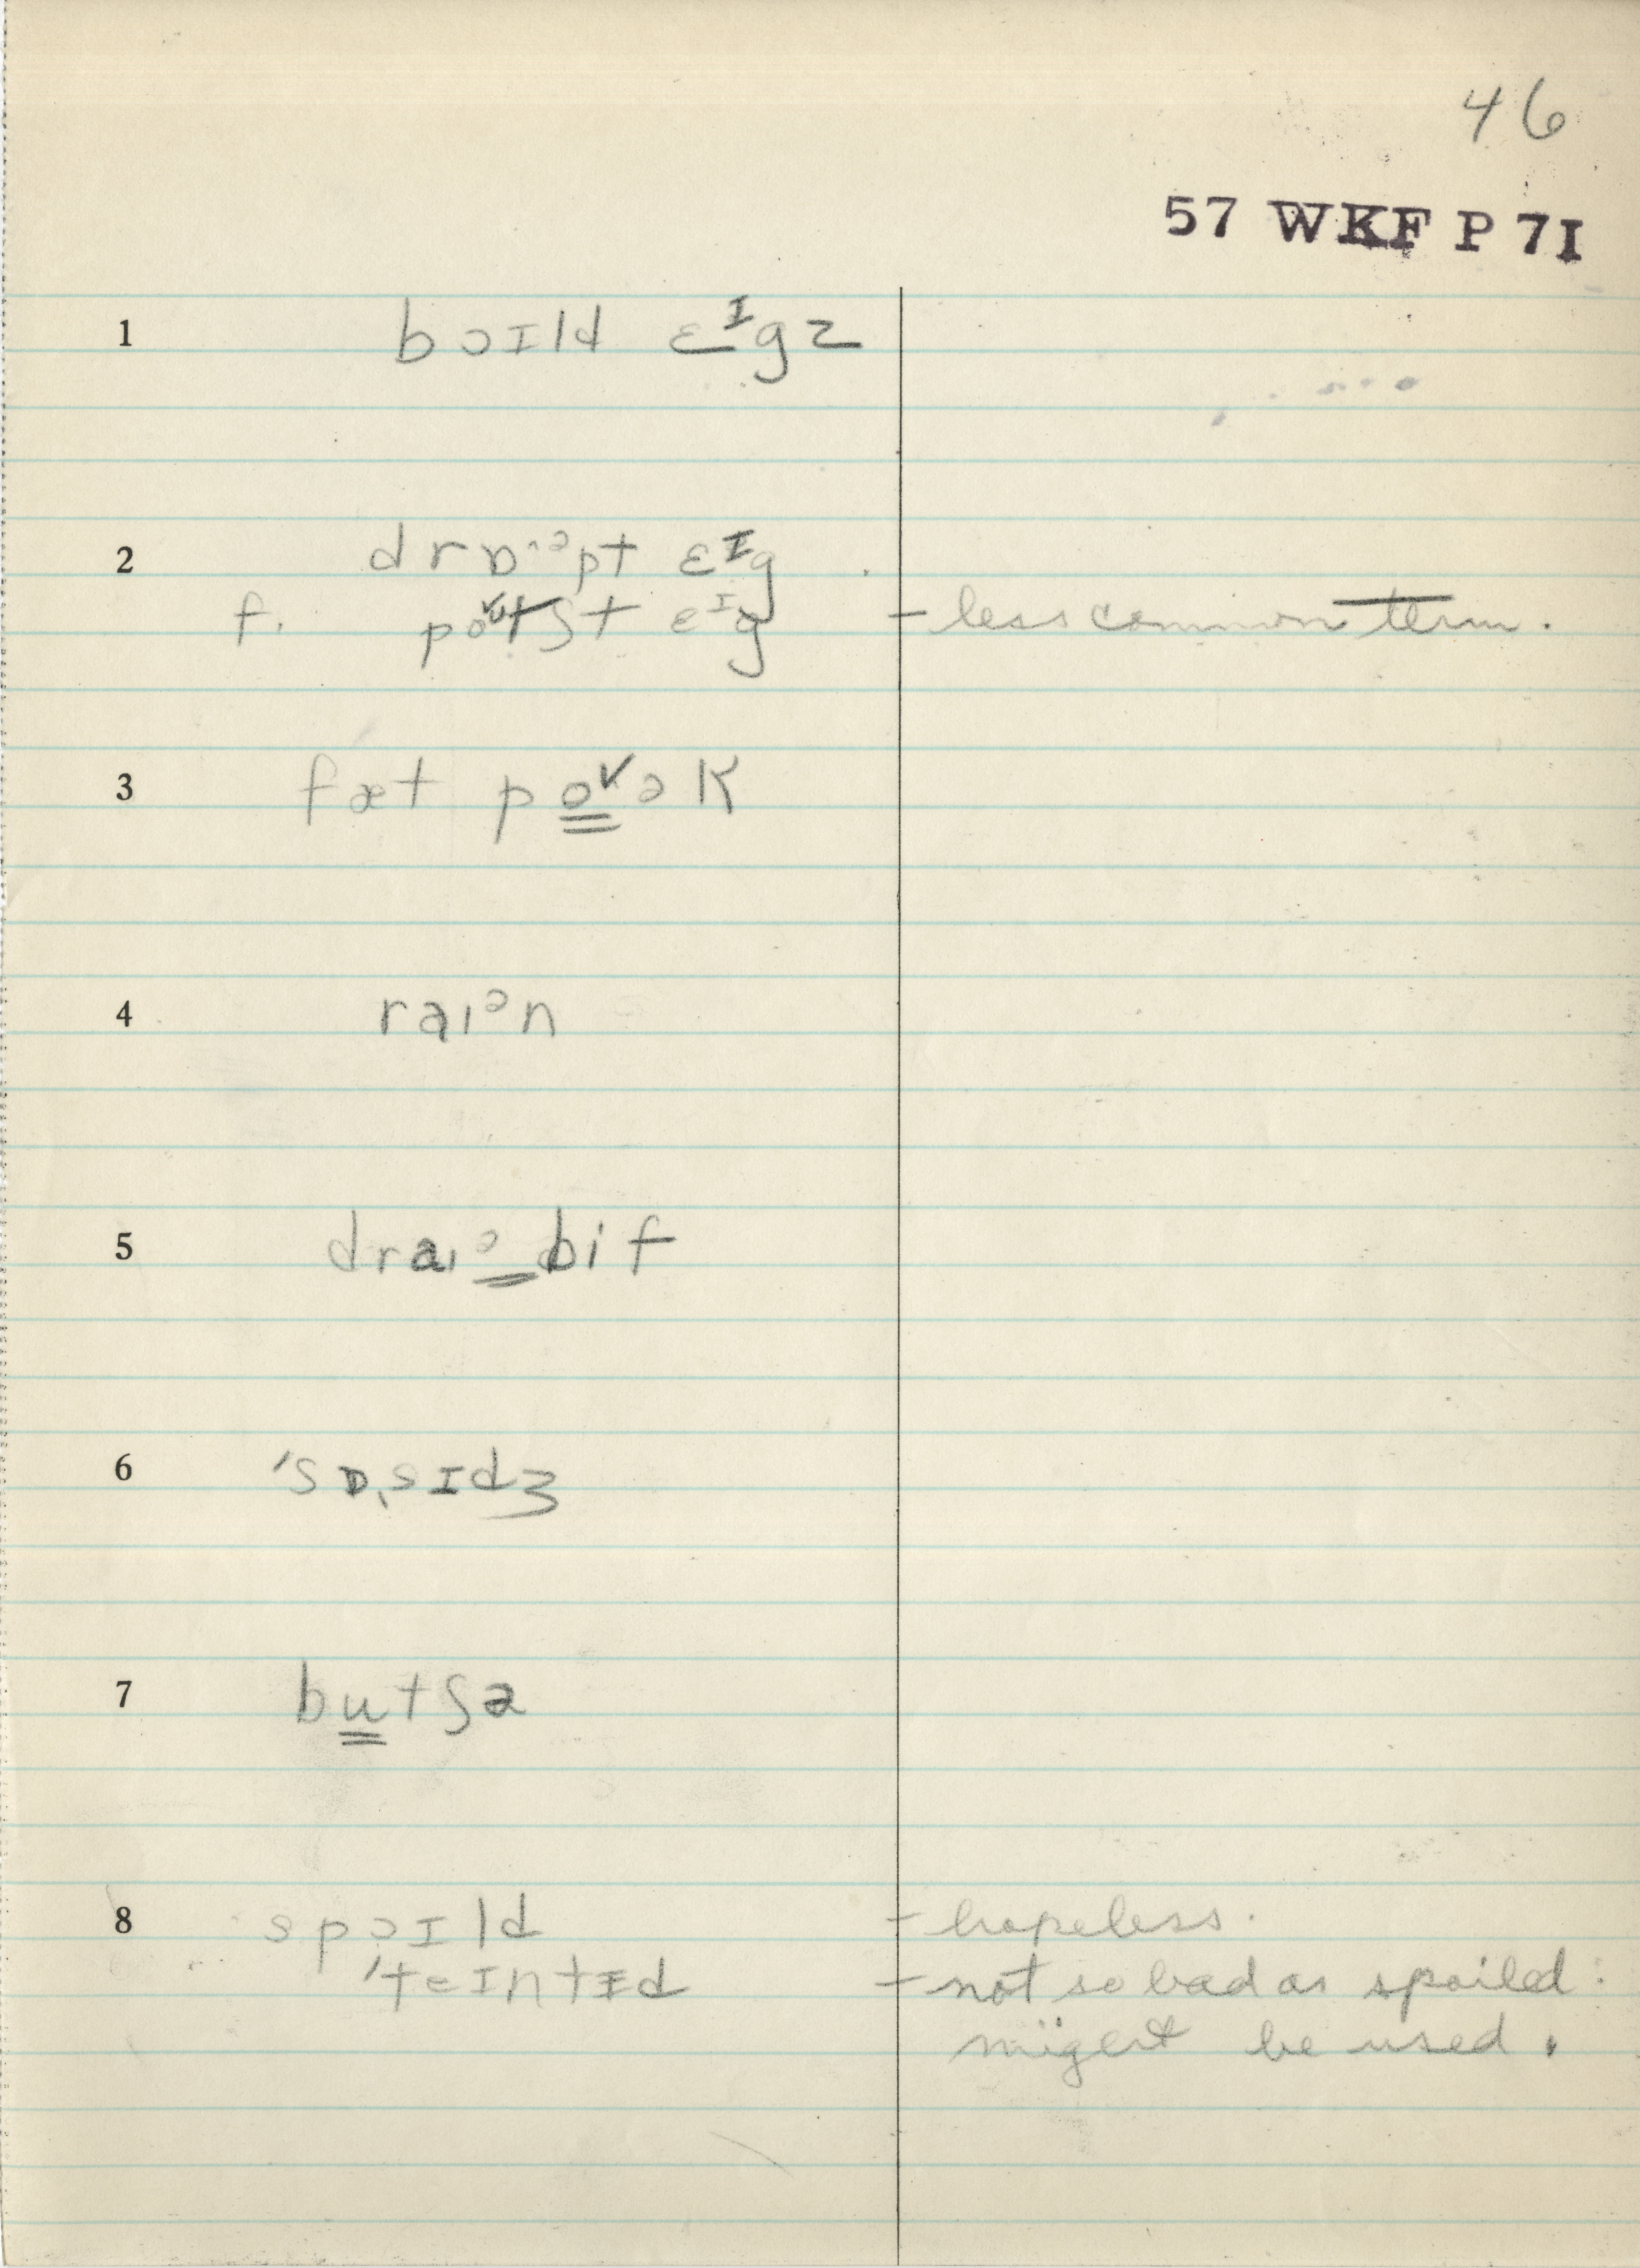 46
57 WKF P 7I
1 bɔɪld ɛᶦgz
2 drɒ·ᵊpt ɛᶦg
f. po˅ʊtʃt ɛᶦg - less common term.
3 fæt po˅ək
4 raɪᵊn
5 draɪᵊ bif
6 'sɒˌsɪdʒ
7 butʃə
8 spɔɪld - hopeless.
'teɪntɪd - not so bad as spoiled:
might be used.